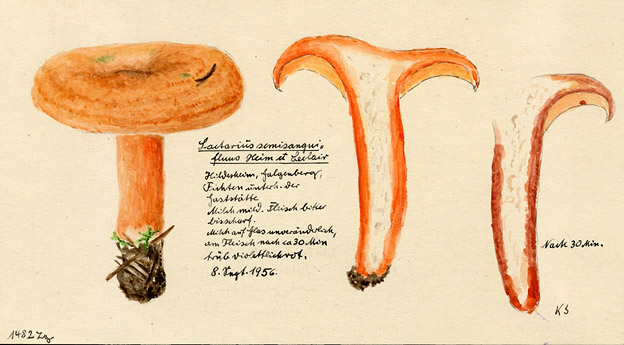 Lactarius semisangui-
fluus Heim et Leclair
Hildesheim, Galgenberg,
Fichten unterh. der
Gaststätte
Milch mild. Fleisch bitter
bisscharf.
Milch auf Glas unveränderlich,
am Fleisch nach ca 30 Min
trüb violettlichrot.
8. Sept. 1956.
Nach 30 Min.
KS
1482